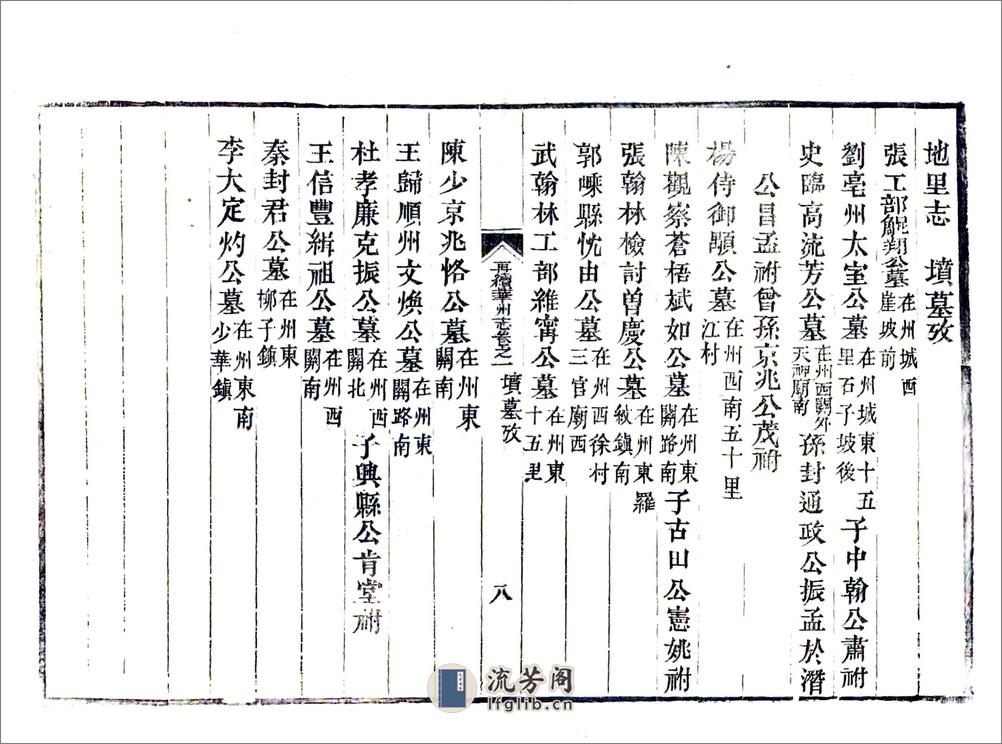 地里志　墳墓攷
張工部鵾翔公墓在州城西崖坡前
劉亳州太室公墓在州城東十五里石子坡後子中翰公肅祔
史臨高流芳公墓在州西關外天神廟南孫封通政公振孟於潛
公昌孟祔曾孫京兆公茂祔
楊侍御顯公墓在州西南五十里江村
陳觀察蒼梧斌如公墓在州東關路南子古田公憲姚祔
張翰林檢討曾慶公墓在州東羅紋鎮南
郭嵊縣忱由公墓在州西徐村三官廟西
武翰林工部維寗公墓在州東十五里
再續華州志卷之一　墳墓攷　八
陳少京兆恪公墓在州東關南
王歸順州文煥公墓在州東關路南
杜孝廉克振公墓在州西關北子興縣公肯堂祔
王信豐緝祖公墓在州西關南
秦封君公墓在州東柳子鎮
李大定灼公墓在州東南少華鎮
流芳阁
lfglib.cn